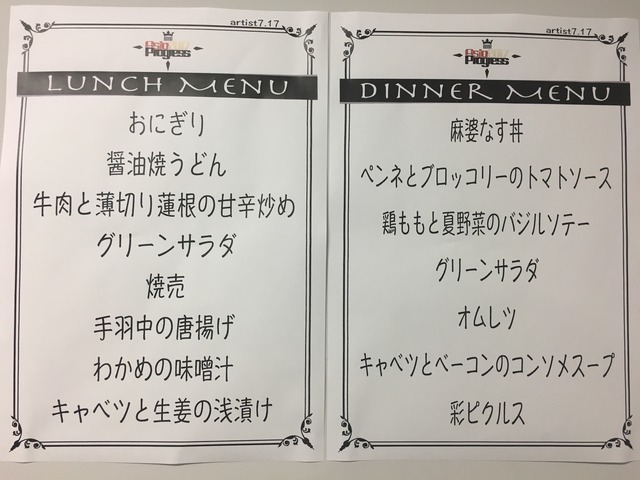 artist7.17
Asia2017
Progress
LUNCH MENU
おにぎり
醤油焼うどん
牛肉と薄切り蓮根の甘辛炒め
グリーンサラダ
焼売
手羽中の唐揚げ
わかめの味噌汁
キャベツと生姜の浅漬け
artist7.17
Asia2017
Progress
DINNER MENU
麻婆なす丼
ペンネとブロッコリーのトマトソース
鶏ももと夏野菜のバジルソテー
グリーンサラダ
オムレツ
キャベツとベーコンのコンソメスープ
彩ピクルス